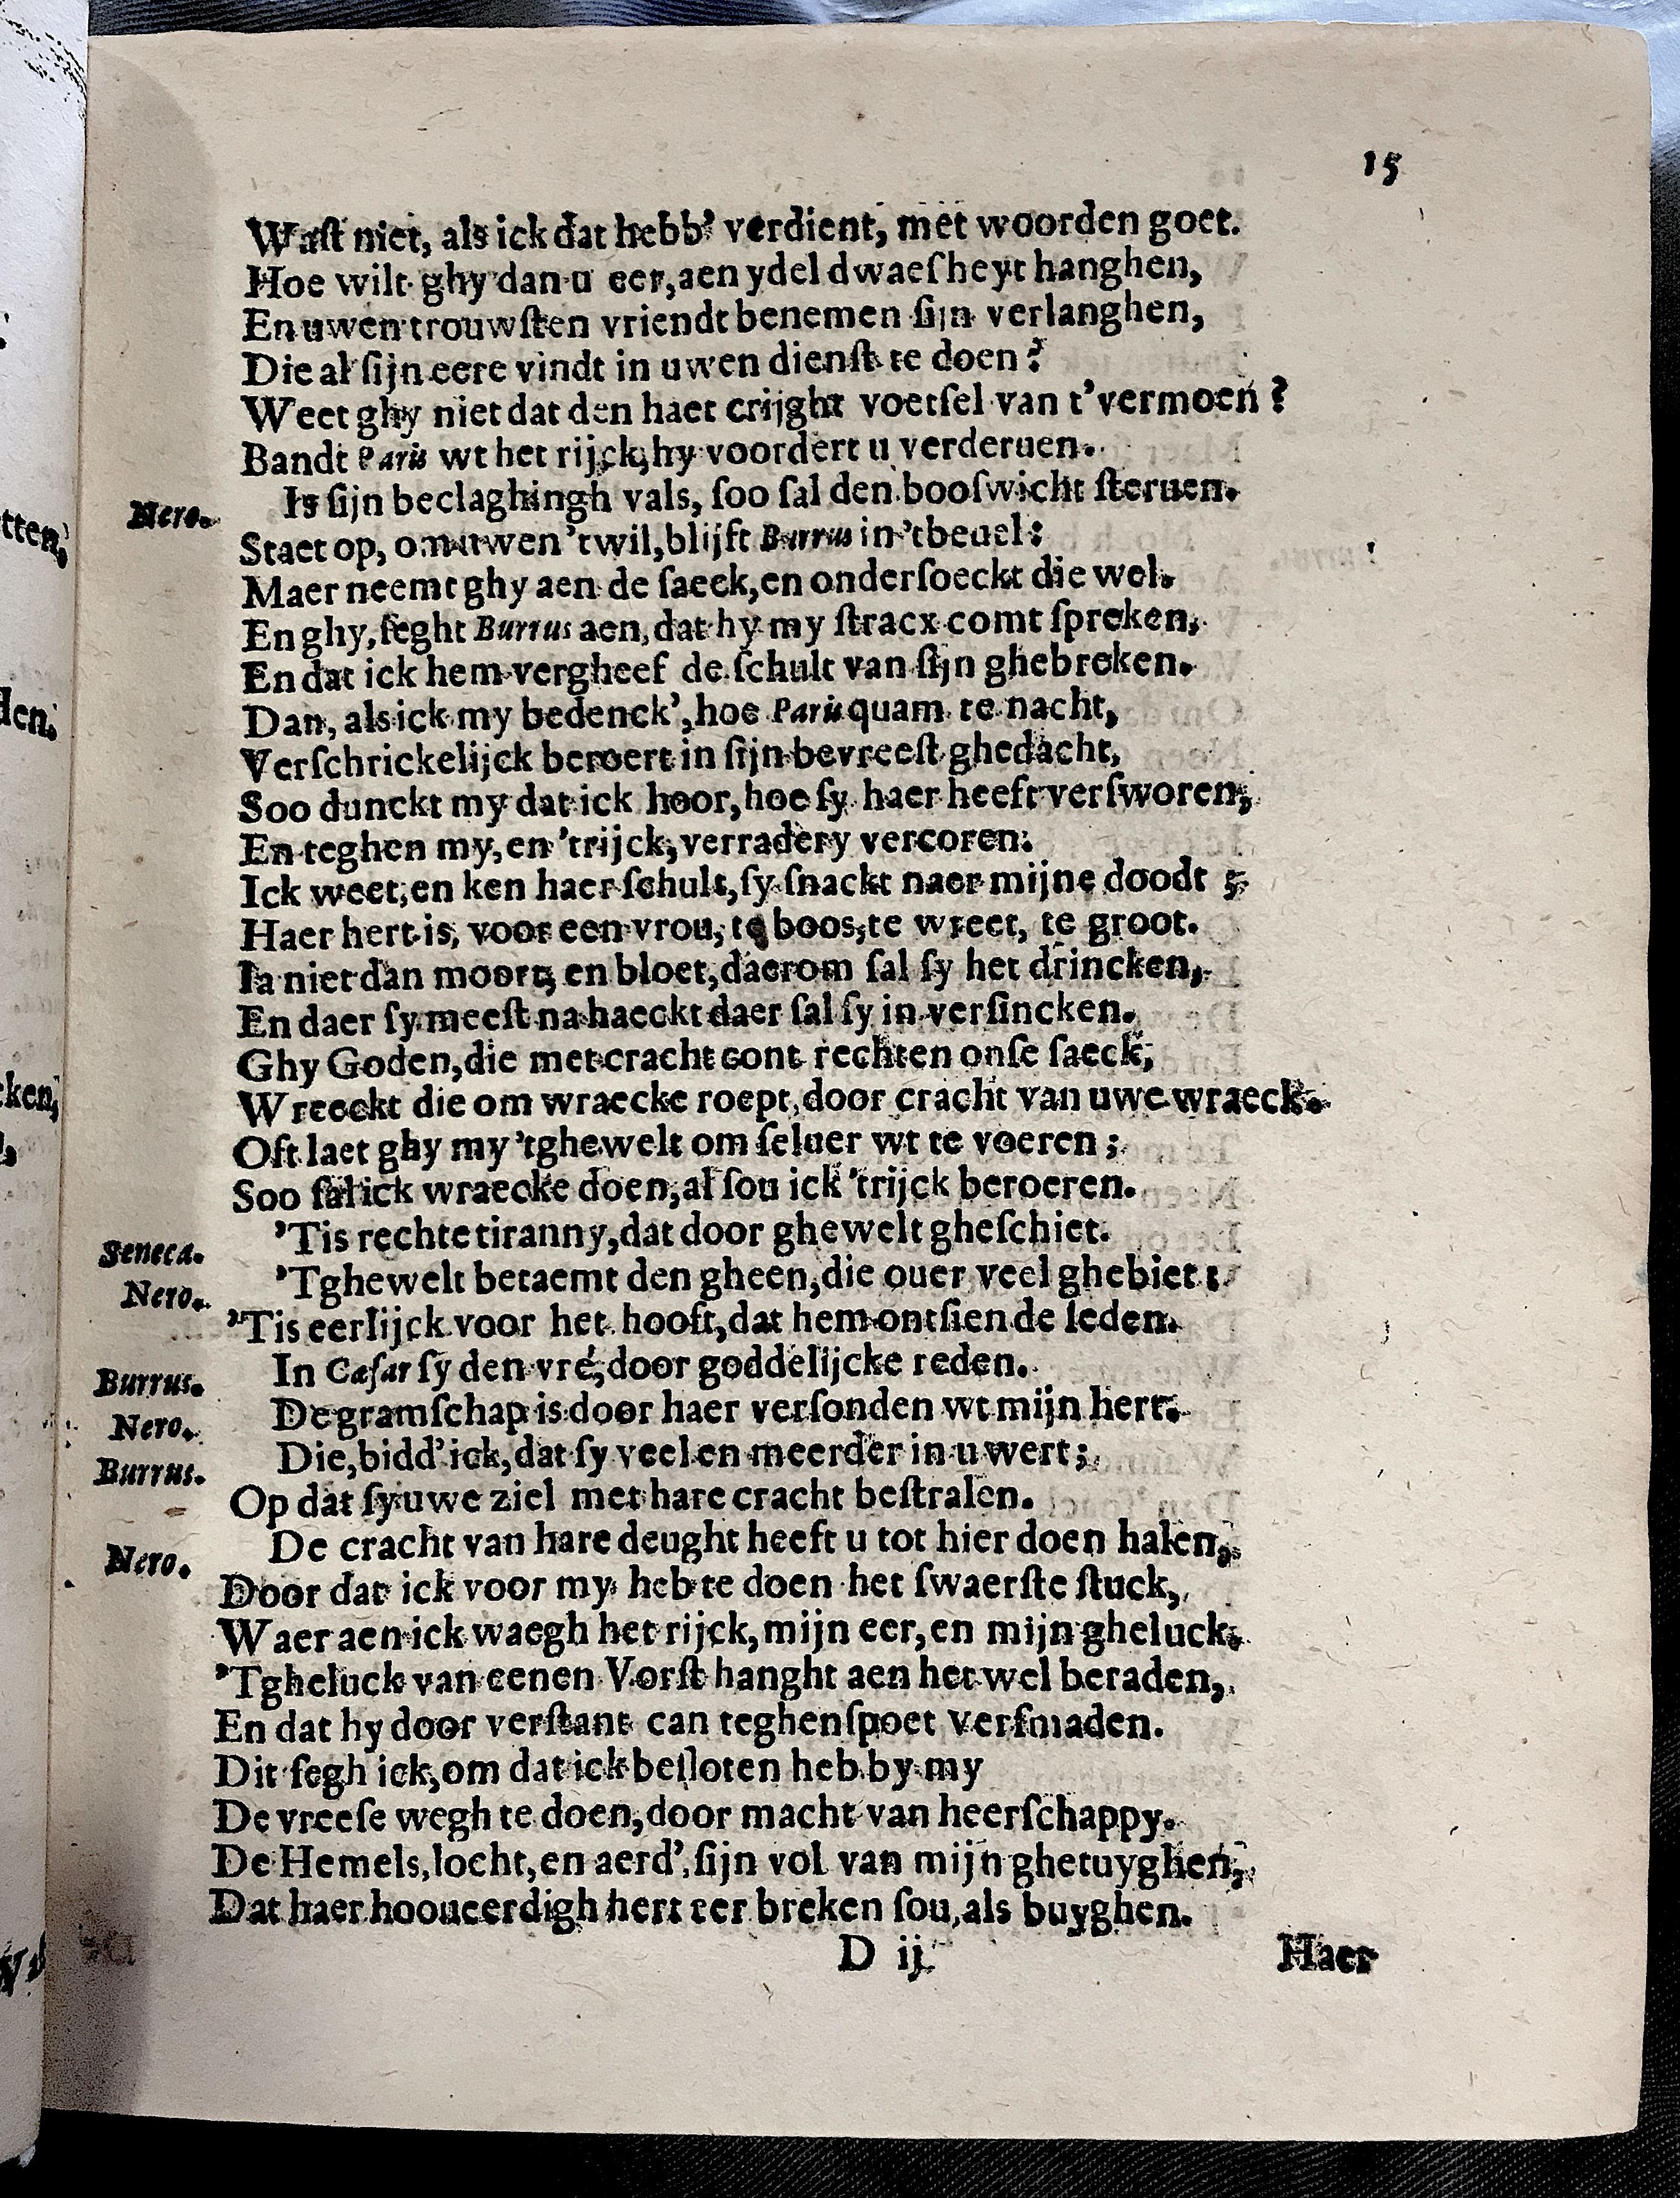 15
Wast niet, als ick dat hebb' verdient, met woorden goet.
Hoe wilt ghy dan u eer, aen ydel dwaesheyt hanghen,
En uwen trouwsten vriendt benemen sijn verlanghen,
Die al sijn eere vindt in uwen dienst te doen?
Weet ghy niet dat den haet crijght voetsel van t'vermoen?
Bandt Paris wt het rijck, hy voordert u verderuen.
Nero. Is sijn beclaghingh vals, soo sal den booswicht steruen.
Staet op, om uwen 'twil, blijft Burrus in 'tbeuel:
Maer neemt ghy aen de saeck, en ondersoeckt die wel.
En ghy, seght Burrus aen, dat hy my stracx comt spreken,
En dat ick hem vergheef de schult van sijn ghebreken.
Dan, als ick my bedenck', hoe Paris quam te nacht,
Verschrickelijck beroert in sijn bevreest ghedacht,
Soo dunckt my dat ick hoor, hoe sy haer heeft versworen,
En teghen my, en 'trijck, verradery vercoren.
Ick weet, en ken haer schult, sy snackt naer mijne doodt ;
Haer hert is, voor een vrou, te boos, te wreet, te groot.
Ia niet dan moort, en bloet, daerom sal sy het drincken,
En daer sy meest na haeckt daer sal sy in versincken.
Ghy Goden, die met cracht cont rechten onse saeck,
Wreeckt die om wraecke roept, door cracht van uwe wraeck.
Oft laet ghy my 'tghewelt om seluer wt te voeren ;
Soo sal ick wraecke doen, al sou ick 'trijck beroeren.
Seneca. 'Tis rechte tiranny, dat door ghewelt gheschiet.
Nero. 'Tghewelt betaemt den gheen, die ouer veel ghebiet :
'Tis eerlijck voor het hooft, dat hem ontsien de leden.
Burrus. In Cæsar sy den vré, door goddelijcke reden.
Nero. De gramschap is door haer versonden wt mijn hert.
Burrus. Die, bidd' ick, dat sy veel en meerder in u wert ;
Op dat sy uwe ziel met hare cracht bestralen.
Nero. De cracht van hare deught heeft u tot hier doen halen,
Door dat ick voor my heb te doen het swaerste stuck,
Waer aen ick waegh het rijck, mijn eer, en mijn gheluck.
'Tgheluck van eenen Vorst hanght aen het wel beraden,
En dat hy door verstant can teghenspoet versmaden.
Dit segh ick, om dat ick besloten heb by my
De vreese wegh te doen, door macht van heerschappy.
De Hemels, locht, en aerd', sijn vol van mijn ghetuyghen,
Dat haer hooueerdigh hert eer breken sou, als buyghen.
D ij
Haer